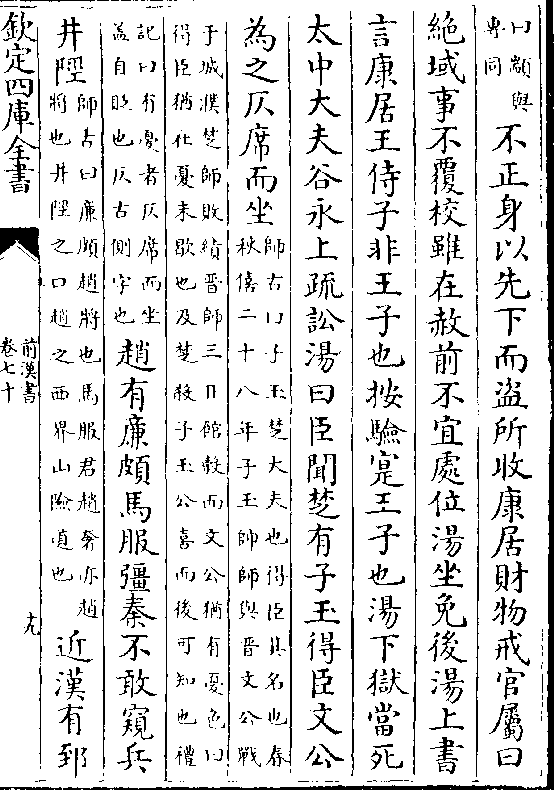 曰顓與
專同
不正身以先下而盜所收康居財物戒官屬曰
絶域事不覆校雖在赦前不宜處位湯坐免後湯上書
言康居王侍子非王子也按驗寔王子也湯下獄當死
太中大夫谷永上疏訟湯曰臣聞楚有子玉得臣文公
為之仄席而坐
師古曰子玉楚大夫也得臣其名也春
秋僖二十八年子玉帥師與晉文公戰
于城濮楚師敗績晉師三日館穀而文公猶有憂色曰
得臣猶在憂未歇也及楚殺子玉公喜而後可知也禮
記曰有憂者仄席而坐
蓋自貶也仄古側字也
趙有廉頗馬服彊秦不敢窺兵
井陘
師古曰廉頗趙將也馬服君趙奢亦趙
將也井陘之口趙之西界山險道也
近漢有郅
欽定四庫全書
前漢書
卷七十
十九